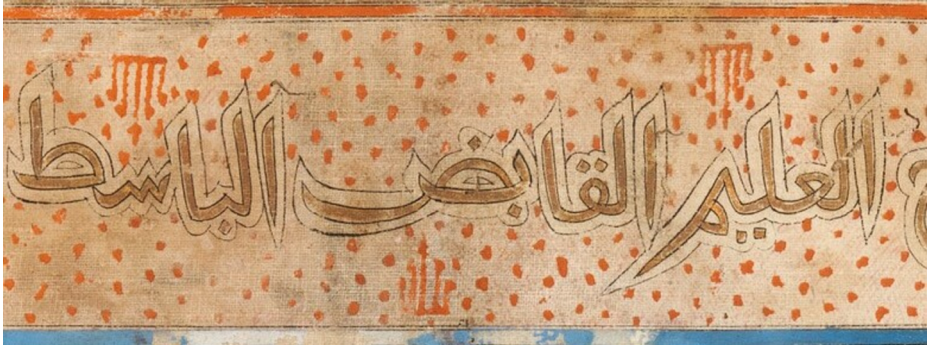 العليم القابض الباسط